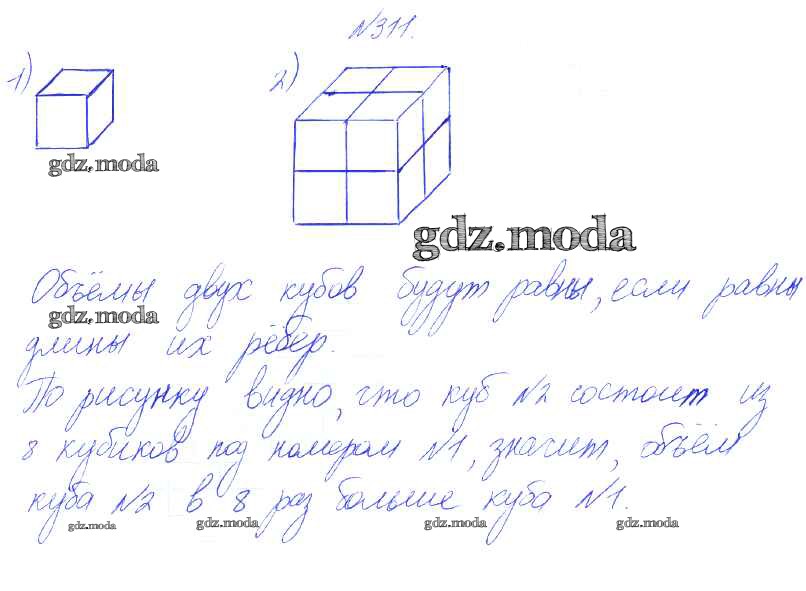 №311.
1)
2)
gdz.moda
gdz.moda
Объёмы двух кубов будут равны, если равны
gdz.moda
длины их рёбер.
По рисунку видно, что куб №2 состоит из
8 кубиков под номером №1, значит, объём
куба №2 в 8 раз больше куба №1.
gdz.moda gdz.moda gdz.moda gdz.moda